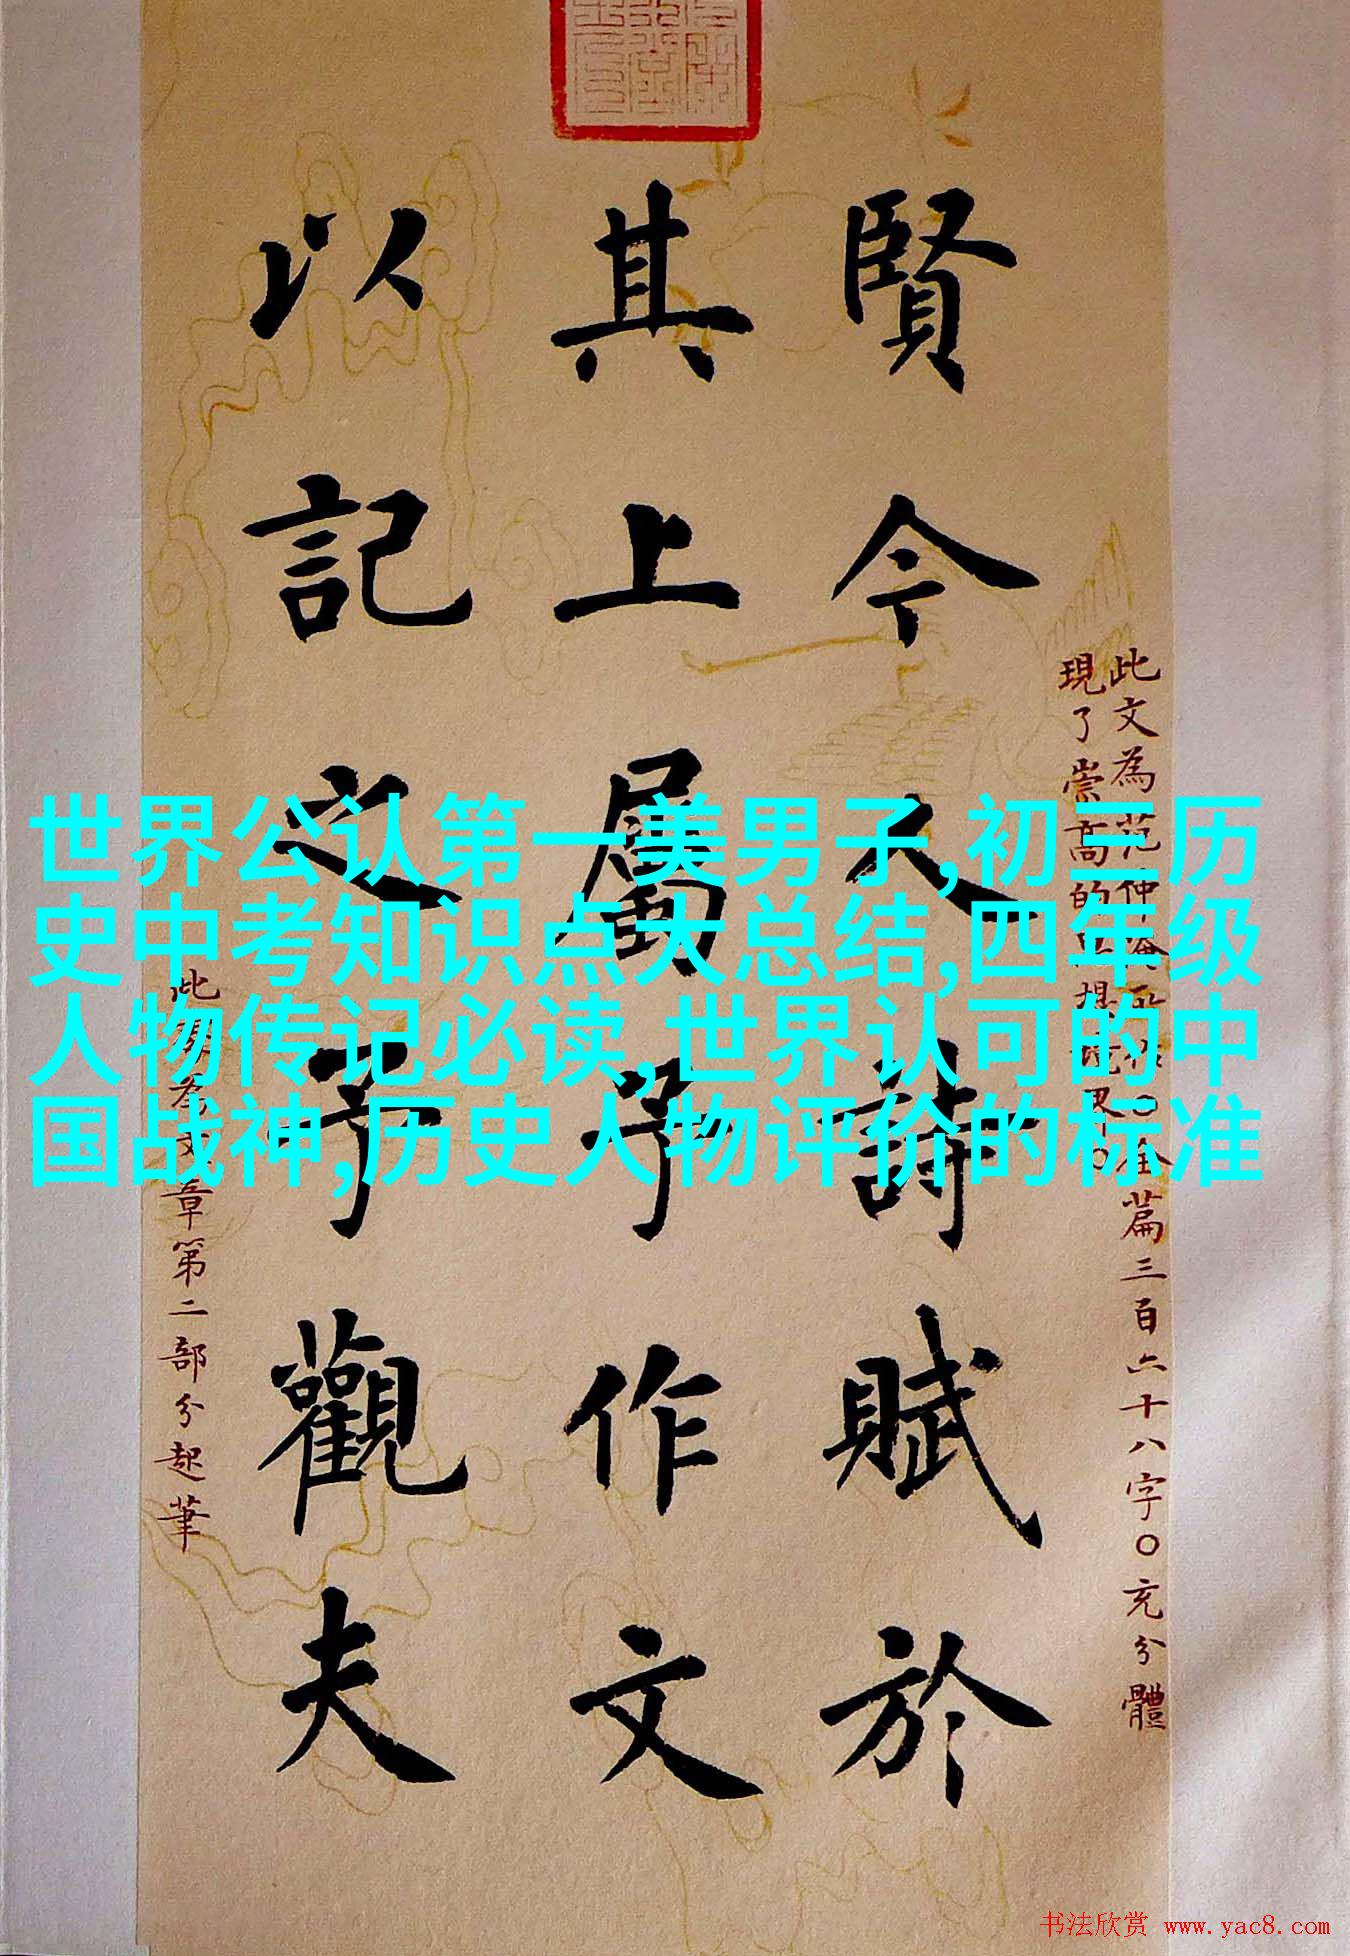 賢今人詩賦於
其上屬予作文
以記之予觀夫
此文為范仲淹所作○全篇三百六十八字○充分體
現了崇高的思想境界○
世界公认第一美男子,初三历
史中考知识点大总结,四年级
人物传记必读,世界认可的中
国战神,历史人物评价的标准
章第二部分起筆
书法欣赏 www.yac8.com